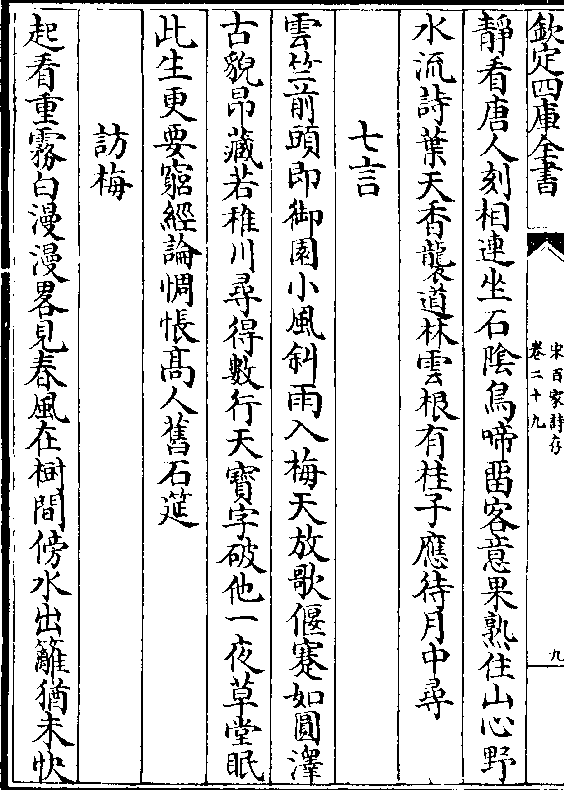 欽定四庫全書
宋百家詩存
卷二十九
九
靜看唐人刻相連坐石陰鳥啼留客意果熟住山心野
水流詩葉天香襲道林雲根有桂子應待月中尋
七言
雲竺前頭即御園小風斜雨入梅天放歌偃蹇如圓澤
古貌昂藏若稚川尋得數行天寶字破他一夜草堂眠
此生更要窮經論惆悵髙人舊石筵
訪梅
起看重霧白漫漫畧見春風在樹間傍水出籬猶未快